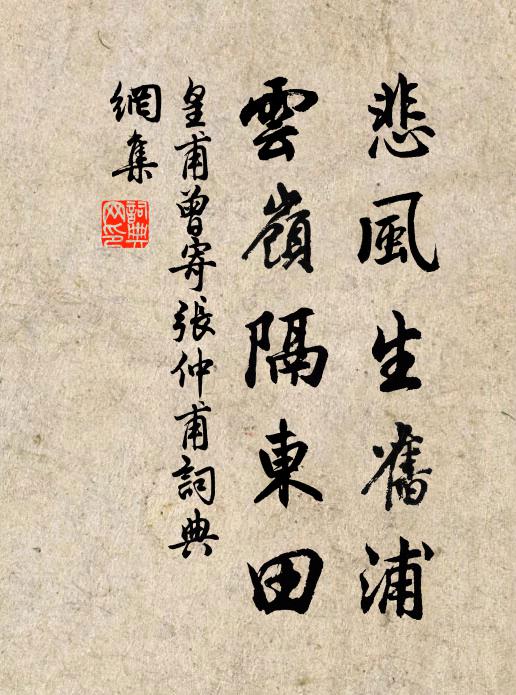 悲風生舊浦
雲嶺隔東田
皇甫曾寄張仲甫詞典
網集
詞典
网印